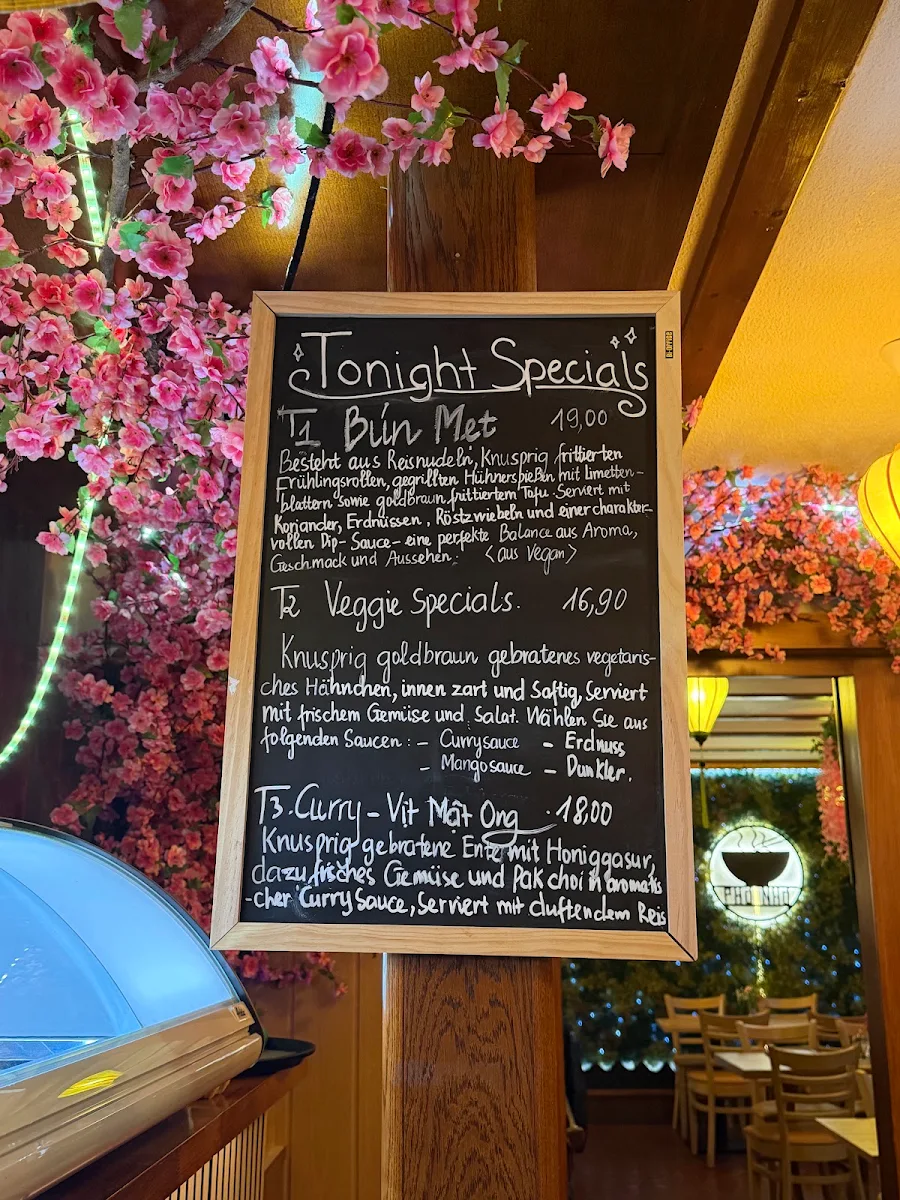 Tonight Specials
T1 Bún Met 19,00
Besteht aus Reisnudeln, Knusprig frittierten
Frühlingsrollen, gegrillten Hühnerspießen mit limetten-
blattern sowie goldbraun frittiertem Tofu. Serviert mit
Koriander, Erdnüssen, Röstzwiebeln und einer charakter-
vollen Dip-Sauce-eine perfekte Balance aus Aroma,
Geschmack und Aussehen. <aus Vegan>
T2 Veggie Specials. 16,90
Knusprig goldbraun gebratenes vegetaris-
ches Hähnchen, innen zart und Saftig, Serviert
mit frischem Gemüse und Salat. Wählen Sie aus
folgenden Saucen: - Currysauce - Erdnuss
- Mangosauce - Dunkler.
T3. Curry - Vịt Mật Ong . 18,00
Knusprig gebratene Ente mit Honiggasur,
dazu frisches Gemüse und Pak choi in aromatis
-cher Curry Sauce, Serviert mit duftendem Reis